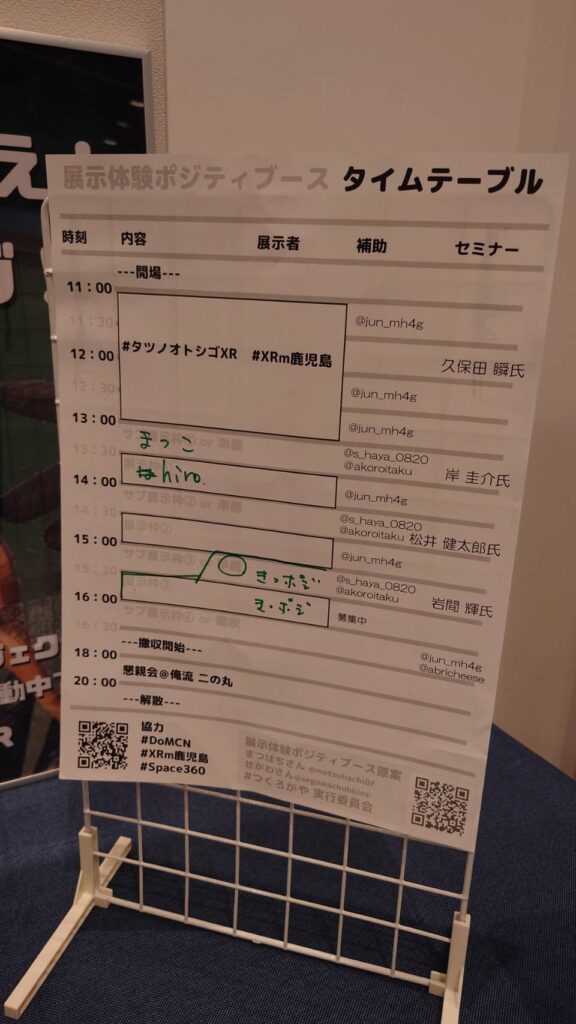 展示体験ポジティブース タイムテーブル
時刻 内容 展示者 補助 セミナー
---開場---
11：00
11：30 @jun_mh4g
12：00 #タツノオトシゴXR #XRm鹿児島 久保田 瞬氏
12：30 @jun_mh4g
13：00 @jun_mh4g
サブ展示枠① or 準備
まつこ
13：30 @s_haya_0820
@akoroitaku 岸 圭介氏
hiro.
14：00 @jun_mh4g
サブ展示枠② or 準備
14：30 @s_haya_0820
@akoroitaku 松井 健太郎氏
展示枠②
15：00 @jun_mh4g
サブ展示枠③
15：30 きっポジ @s_haya_0820
@akoroitaku 岩間 輝氏
展示枠③
16：00 募集中
サブ展示枠④ or 撤収
16：30
---撤収開始--- @jun_mh4g
18：00 @abricheese
懇親会＠俺流 二の丸
20：00
---解散---
協力
#DoMCN
#XRm鹿児島
#Space360
展示体験ポジティブース原案
まつはちさん @matsuhachi01
せがわさん@segawachobbies
#つくろがや 実行委員会